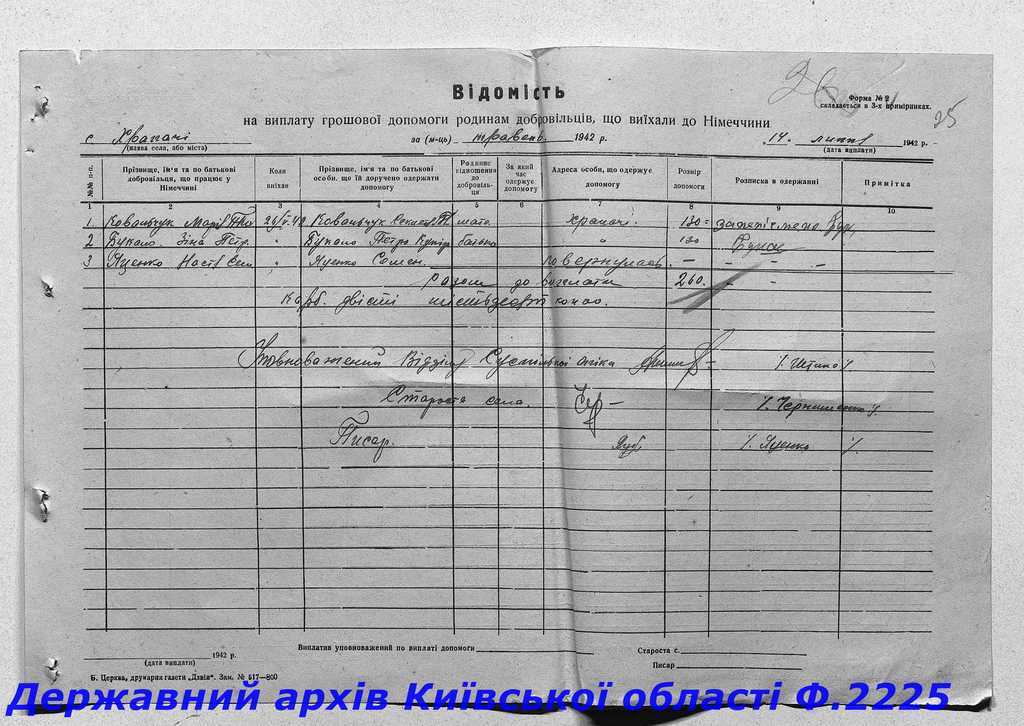 26
25
Форма № 2
складається в 3-х примірниках.
Відомість
на виплату грошової допомоги родинам добровільців, що виїхали до Німеччини
с Храпачі за (м-ць) травень 1942 р. 14. липня 1942 р.
(назва села, або міста) (дата виплати)
№№ п-п. Прізвище, ім'я та по батькові добровільця, що працює у Німеччині Коли виїхав Прізвище, ім'я та по батькові особи, що її доручено одержати допомогу Родинне відношення до добровільця За який час одержує допомогу Адреса особи, що одержує допомогу Розмір допомоги Розписка в одержанні Примітка
1 2 3 4 5 6 7 8 9 10
1. Ковальчук Марія 26/V.42 Ковальчук мати Храпачі 130=
2 Букало Зіна Петр. " Букало Петро батько " 130
3 Яценко Настя Сем " Яценко Семен. повернулась. — — — —
Разом до виплати 260. — —
Карб. двісті шістьдесят карб.
Уповноважений Відділу Суспільної опіки
Староста села.
Писар. /. Яценко /.
1942 р. Виплатив уповноважений по виплаті допомоги Староста с.
(дата виплати) Писар
Б. Церква, друкарня газети „Дзвін". Зам. № 617—800
Державний архів Київської області Ф.2225